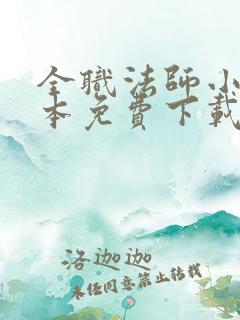 全職法师小
本免費下載
洛迦迦
未经同意禁止转载